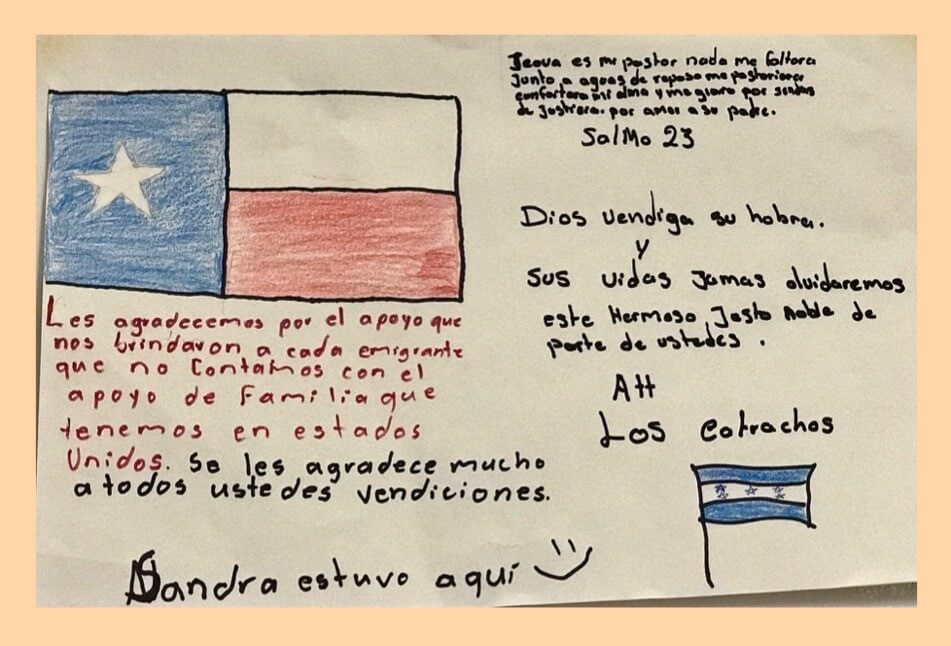 Les agradecemos por el apoyo que
nos brindaron a cada emigrante
que no contamos con el
apoyo de Familia que
tenemos en estados
Unidos. Se les agradece mucho
a todos ustedes vendiciones.
Sandra estuvo aquí
Jeova es mi pastor nada me faltara
Junto a aguas de reposo me pastoriara
confortara mi alma y me giara por sendas
de Justicia. por amor a su padre.
SalMo 23
Dios vendiga su hobra.
y
Sus vidas Jamas olvidaremos
este Hermoso Jesto Noble de
parte de ustedes.
Att
Los Cotrachos